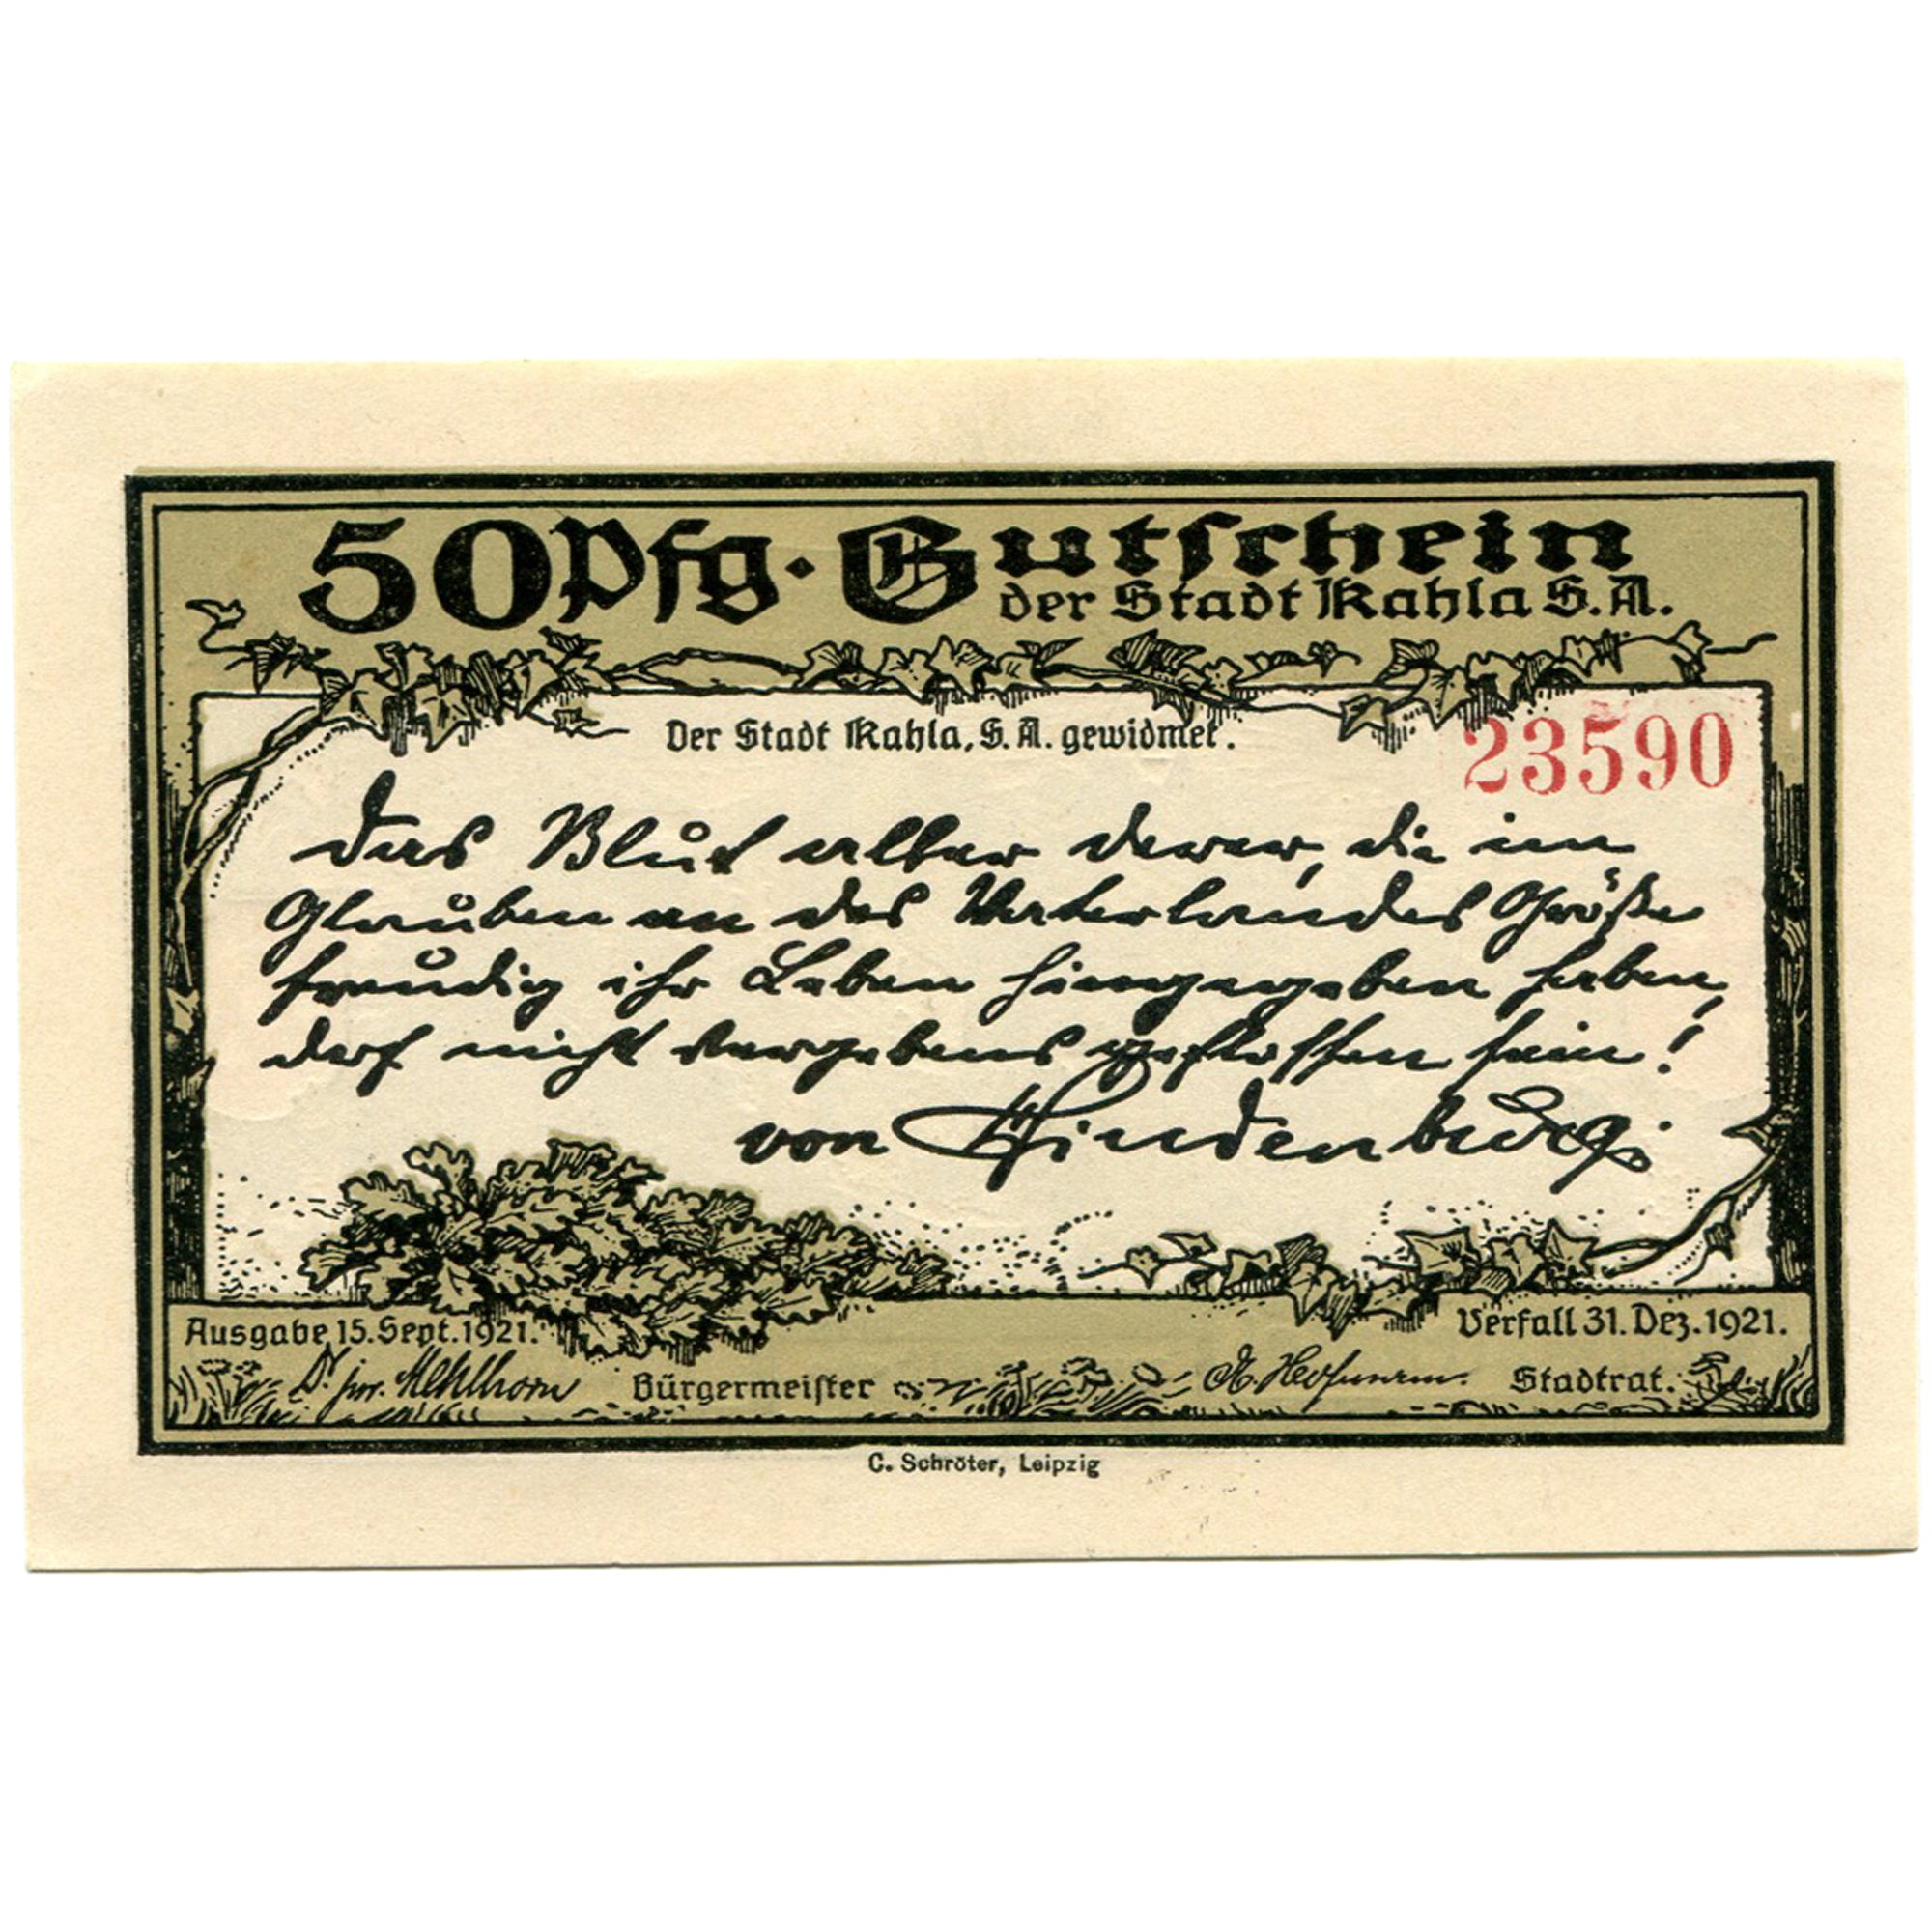 50 Pfg · Gutschein
der Stadt Kahla S. A.
Der Stadt Kahla, S. A. gewidmet.
23590
Das Blut aller derer, die im
Glauben an des Vaterlandes Größe
freudig ihr Leben hingegeben haben,
darf nicht vergebens geflossen sein!
von Hindenburg.
Ausgabe 15. Sept. 1921.
Verfall 31. Dez. 1921.
Dr. jur. Mehlhorn Bürgermeister
Stadtrat.
C. Schröter, Leipzig